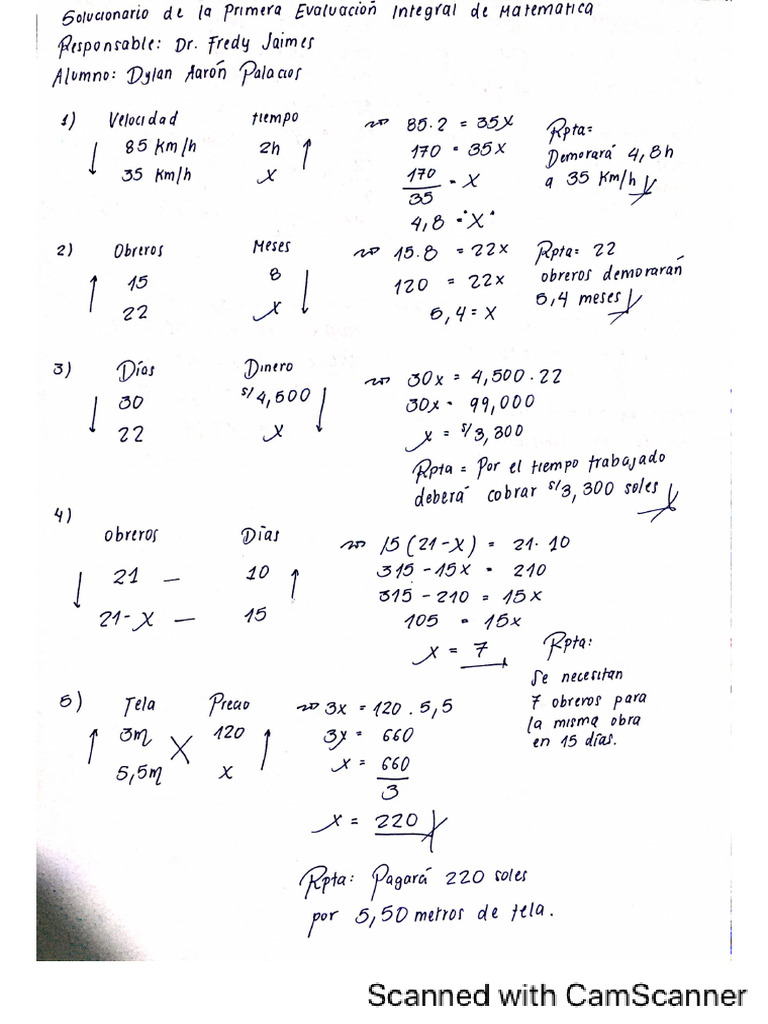 Solucionario de la Primera Evaluación Integral de Matematica
Responsable: Dr. Fredy Jaimes
Alumno: Dylan Aarón Palacios
1) Velocidad tiempo
↓ 85 Km/h 2h ↑
35 Km/h x
85.2 = 35x
170 = 35x
170/35 = x
4,8 = "x"
Rpta:
Demorará 4,8h
a 35 Km/h
2) Obreros Meses
↑ 15 8 ↓
22 x
15.8 = 22x
120 = 22x
5,4 = x
Rpta: 22
obreros demorarán
5,4 meses
3) Días Dinero
↓ 30 s/4,500 ↓
22 x
30x = 4,500.22
30x = 99,000
x = s/3,300
Rpta = Por el tiempo trabajado
deberá cobrar s/3,300 soles
4)
Obreros Días
↓ 21 — 10 ↑
21-x — 15
15(21-x) = 21.10
315-15x = 210
315-210 = 15x
105 = 15x
x = 7
Rpta:
Se necesitan
7 obreros para
la misma obra
en 15 días.
5) Tela Precio
↑ 3m 120 ↑
5,5m x
3x = 120.5,5
3x = 660
x = 660/3
x = 220
Rpta: Pagará 220 soles
por 5,50 metros de tela.
Scanned with CamScanner